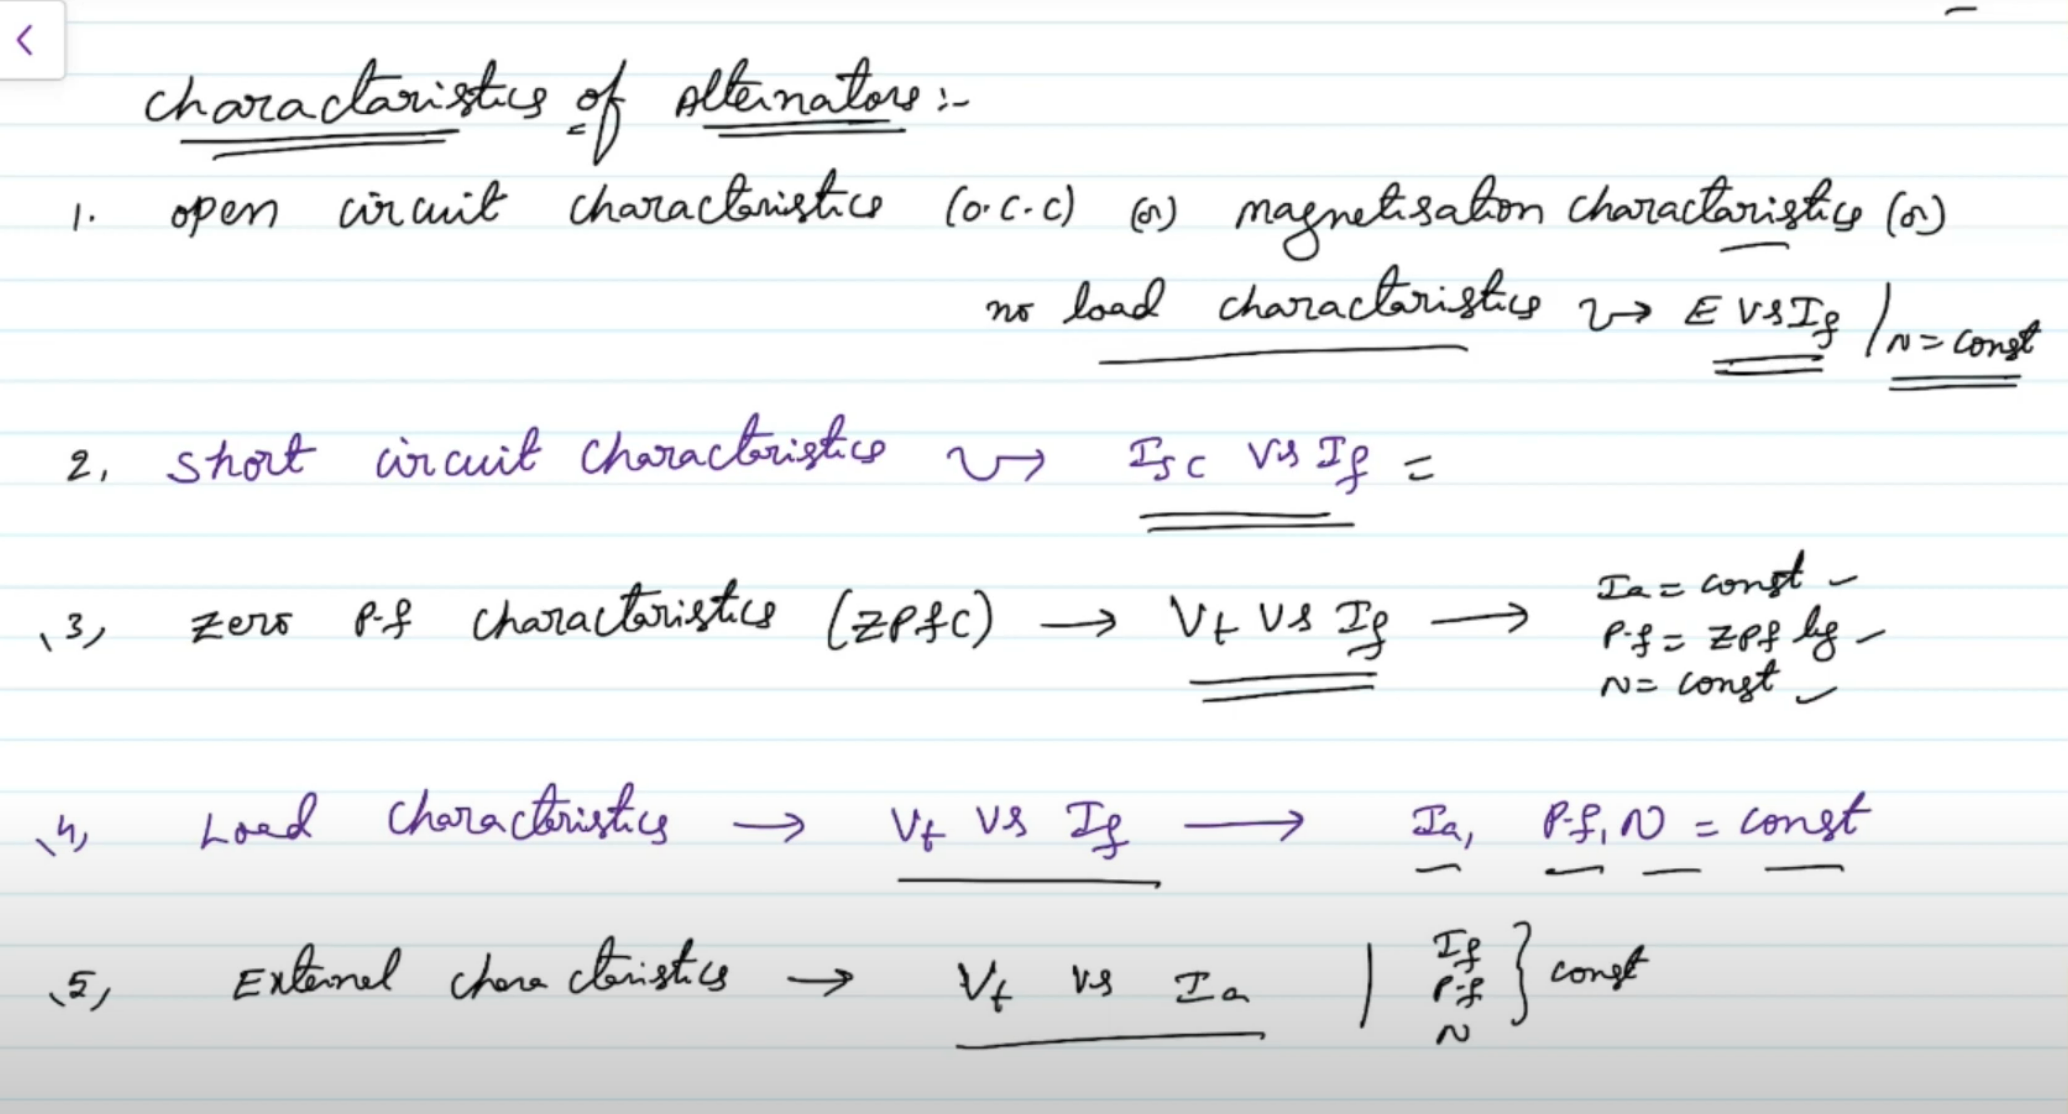 Characteristics of Alternators :-
1. open circuit characteristics (O.C.C) (or) magnetisation characteristics (or)
no load characteristics → E vs If / N = const
2, short circuit characteristics → Isc vs If =
3, zero P.f characteristics (ZPFC) → Vt vs If → Ia = const
P.f = ZPf lag
N = const
4, Load characteristics → Vt vs If → Ia, P.f, N = const
5, External characteristics → Vt vs Ia | If P.f N } const